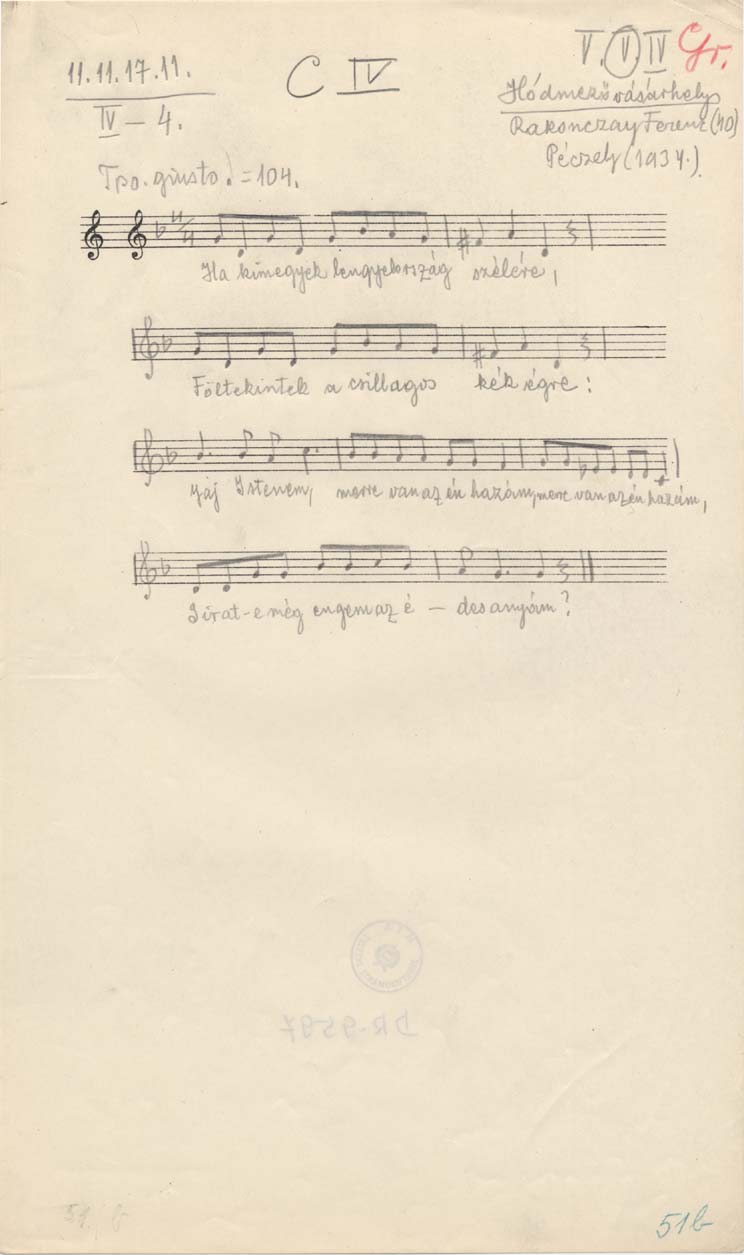 11.11.17.11.
IV – 4.
C IV
V. V IV Gr.
Hódmezővásárhely
Rakonczay Ferenc (40)
Péczely (1934.)
Tpo. giusto ♩ = 104.
4/4
Ha kimegyek lengyelország szélére,
Föltekintek a csillagos kék égre:
Jáj Istenem, merre van az én hazám, merre van az én hazám,
Sirat-e még engem az é – des anyám?
DR-9597
51b
51b